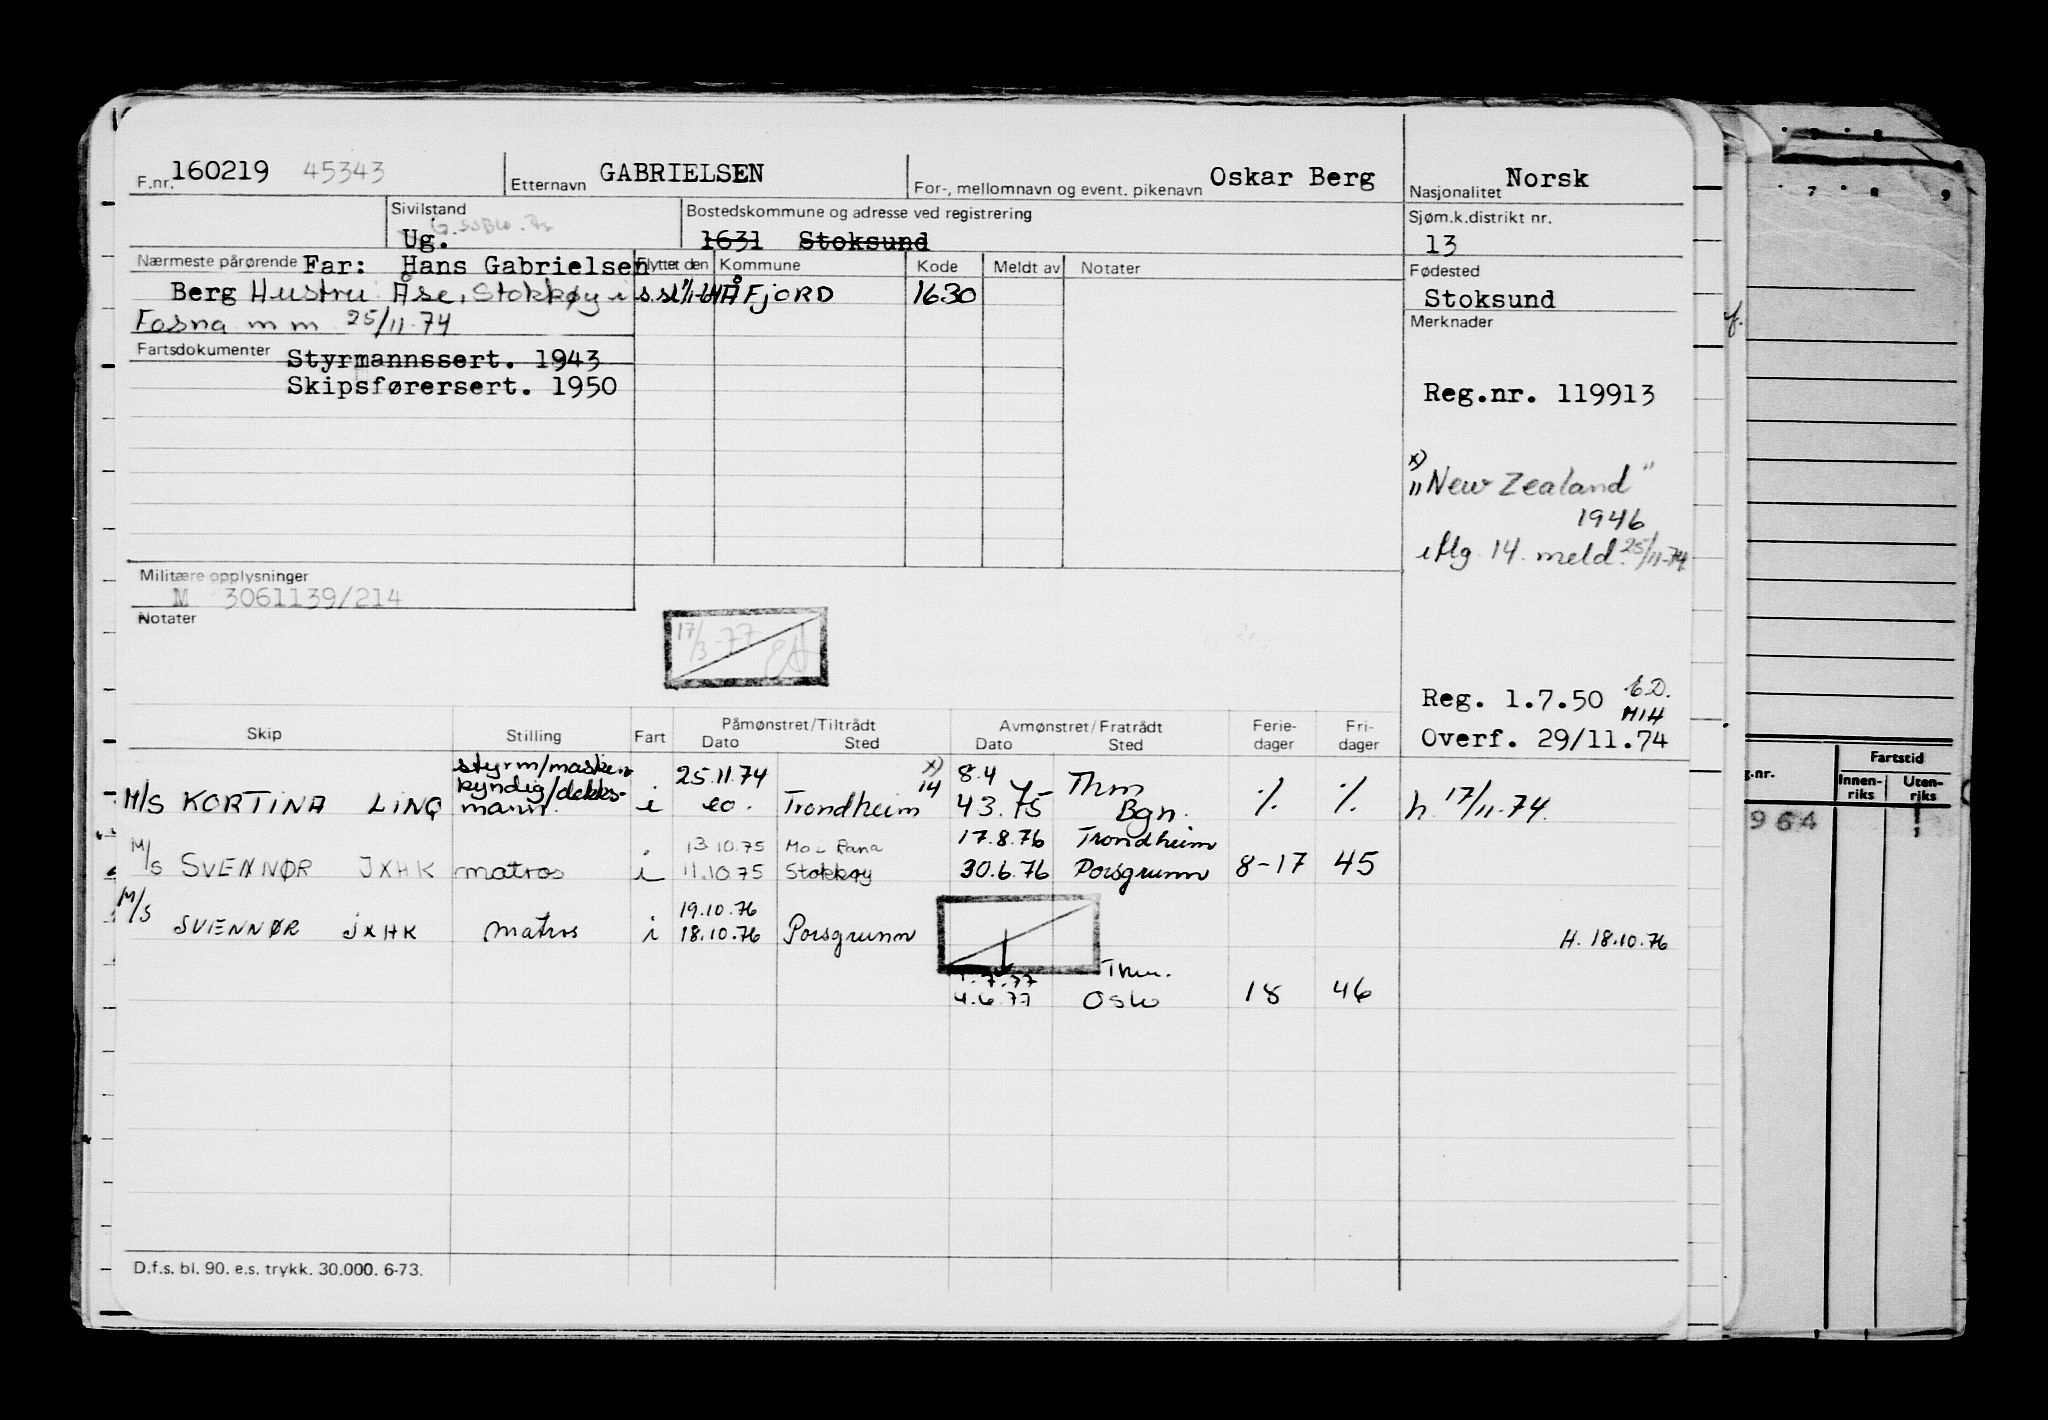 F.nr. 160219 45343 Etternavn GABRIELSEN For-, mellomnavn og event. pikenavn Oskar Berg Nasjonalitet Norsk
Sivilstand Ug.
Bostedskommune og adresse ved registrering
1631 Stoksund
Sjøm.k.distrikt nr.
13
Nærmeste pårørende Far: Hans Gabrielsen
Berg Hustru Åse, Stokkøy i
Fosna m m 25/11-74
Flyttet den Kommune Kode Meldt av Notater
ÅFJORD 1630
Fødested
Stoksund
Merknader
Fartsdokumenter Styrmannssert. 1943
Skipsførersert. 1950
Reg.nr. 119913
x)
"New Zealand"
1946
iflg 14. meld. 25/11-74
Militære opplysninger
M 3061139/214
Notater
17/3-77
Reg. 1.7.50
Overf. 29/11.74
Skip Stilling Fart Påmønstret/Tiltrådt Avmønstret/Fratrådt Ferie-dager Fri-dager
Dato Sted Dato Sted
styrm/maskin 25.11.74 x) 8.4 Thm
kyndig/dekks- 14
M/S KORTINA LINQ mann i eo. Trondheim 4 3.75 Bgn. % % h. 17/11-74.
13.10.75 Mo i Rana 17.8.76 Trondheim
M/S SVENNØR JXHK matros i 11.10.75 Stokkøy 30.6.76 Porsgrunn 8-17 45
19.10.76
M/S SVENNØR JXHK matros i 18.10.76 Porsgrunn H. 18.10.76
7.77 Thm.
4.6.77 Oslo 18 46
D.f.s. bl. 90. e.s. trykk. 30.000. 6-73.
7 8 9
Fartstid
Innen-riks Uten-riks
964